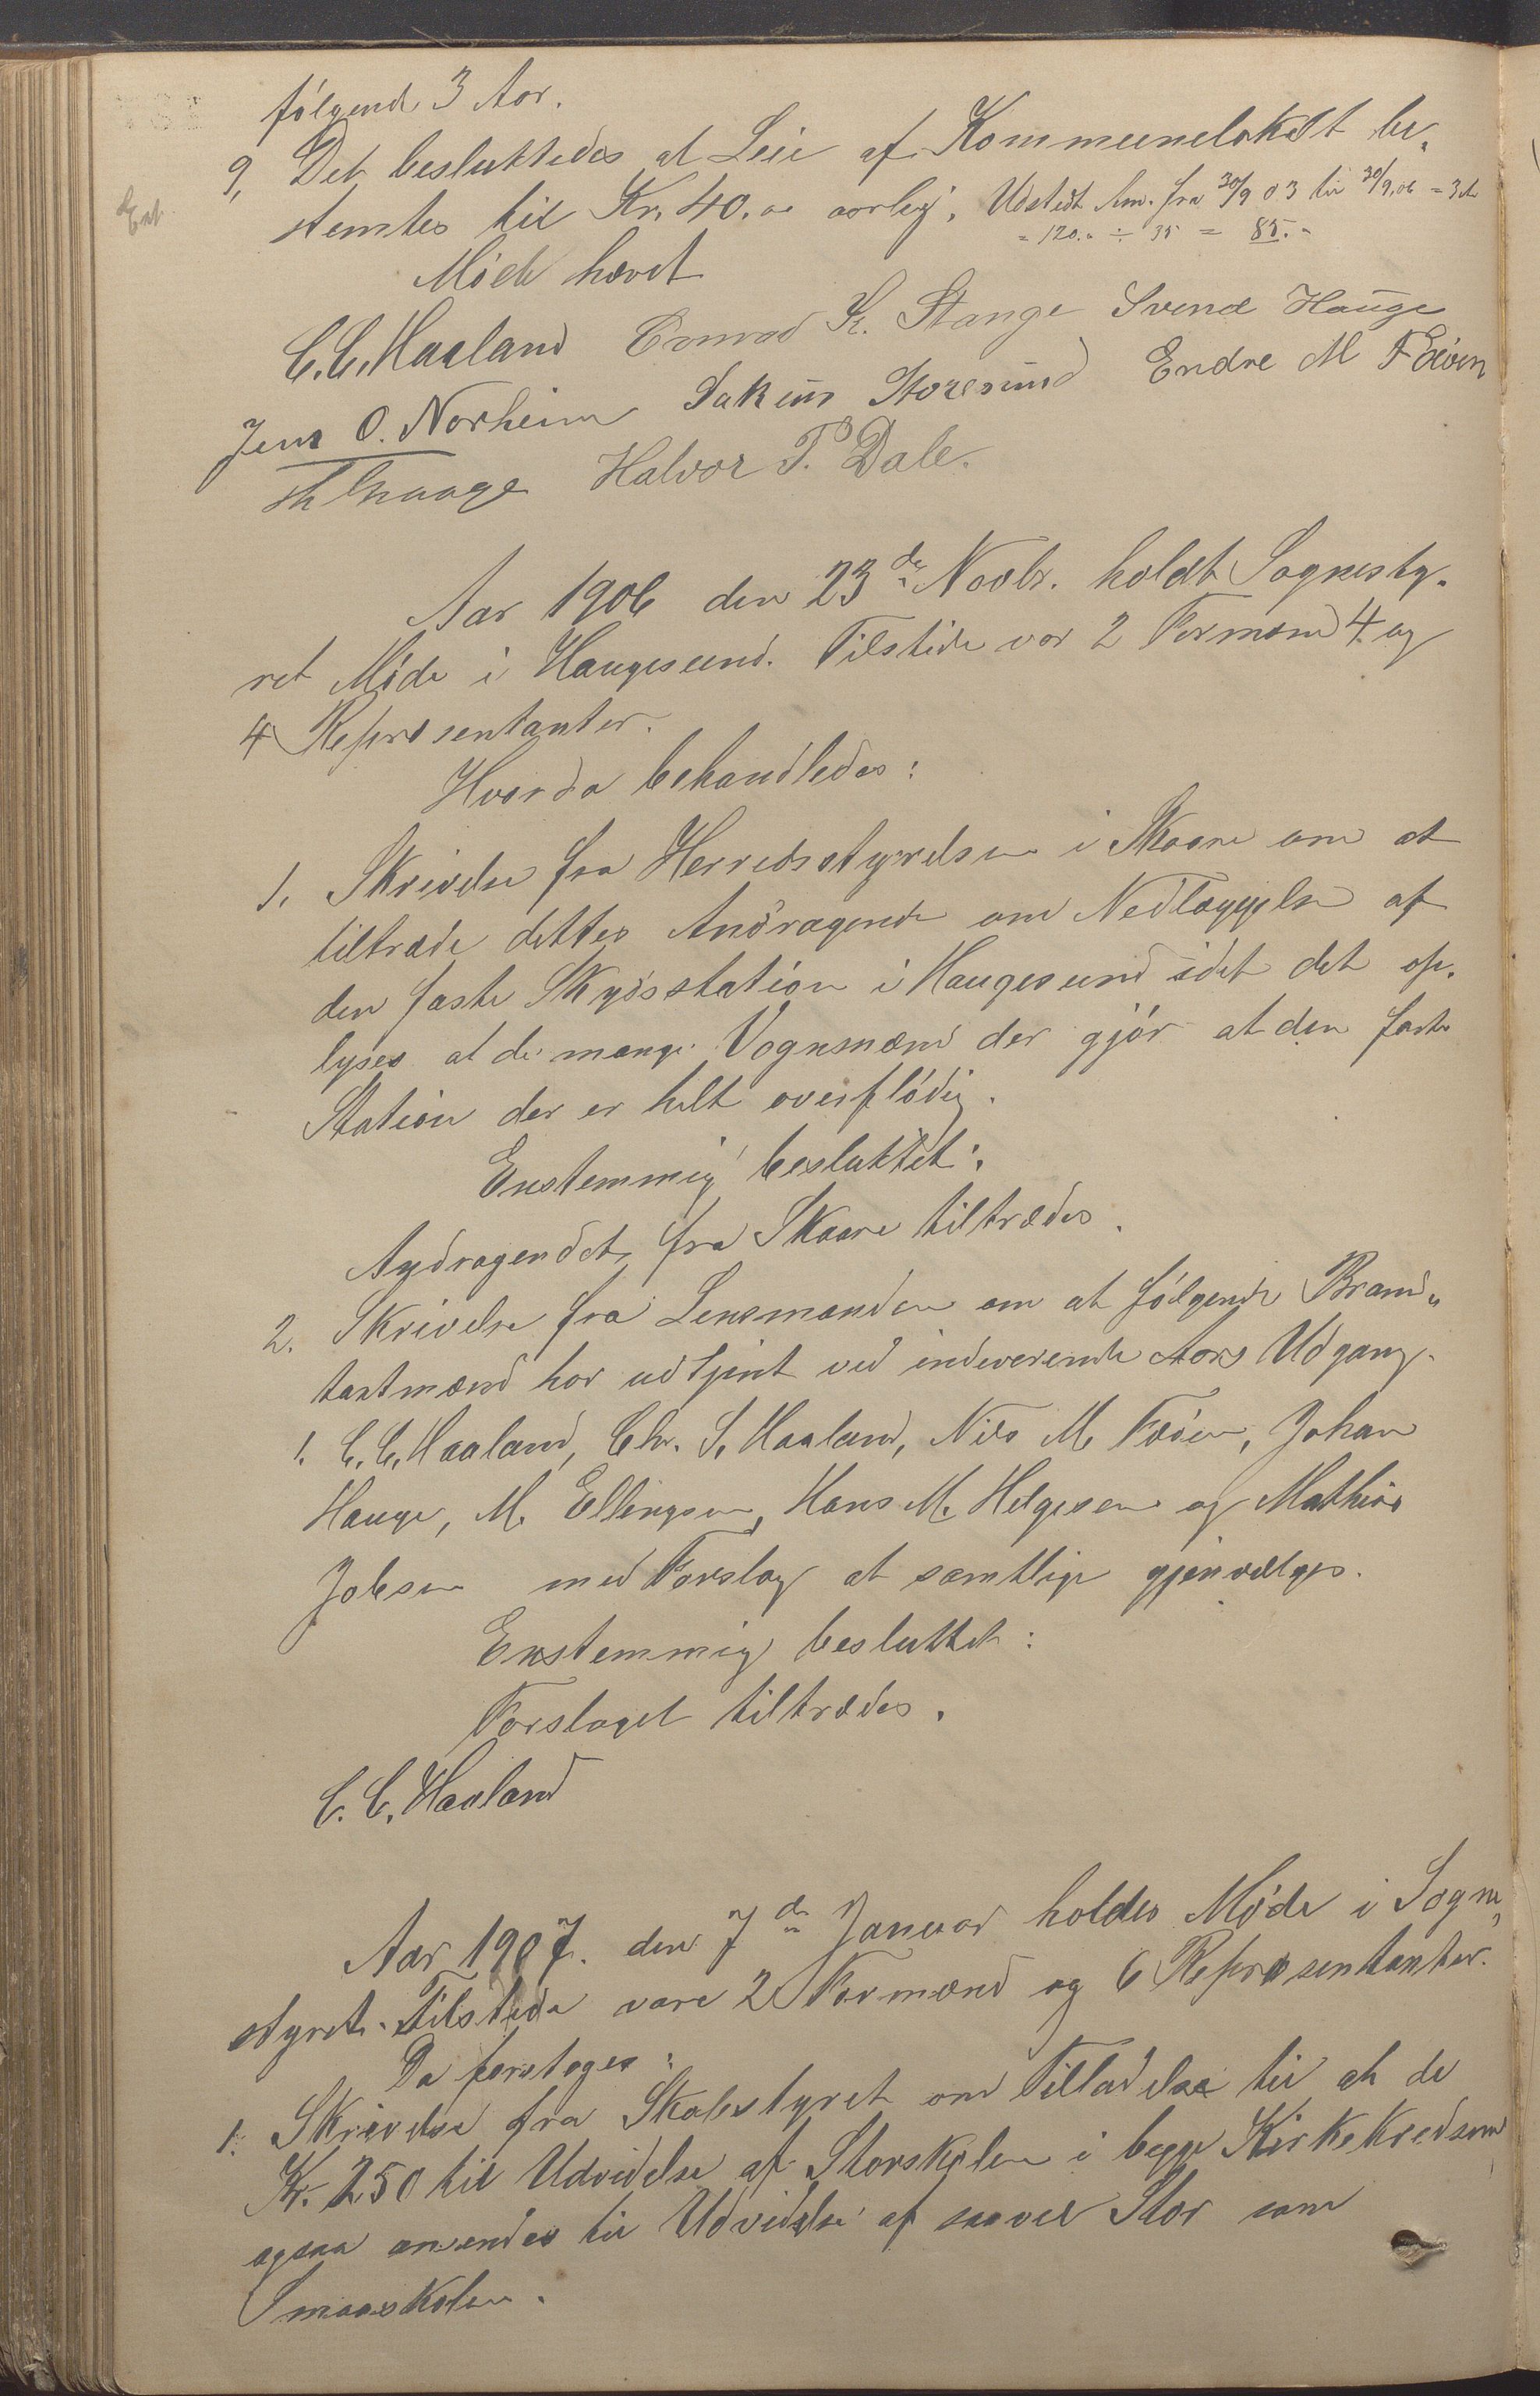 følgende 3 Aar.
9, Det besluttedes at Leie af Kommunelokalet be„
Ext.
stemtes til Kr. 40.00 aarlig. Udstedt Anv. fra 30/9 03 til 30/9.06 = 3
= 120.„ ÷ 35 = 85.„
Møde hævet
C.C. Haaland Conrad K. Stange Svend Hauge
Jens O. Norheim Sakun Storesund Endre M Fæøen
Halvor T. Dale.
Aar 1906 den 23de Novbr. holdt Sognesty„
ret Møde i Haugesund. Tilstede var 2 Formænd 4 og
4 Repræsentanter.
Hvorda behandledes:
1. Skrivelse fra Herredsstyrelsen i Skaare om at
tiltræde dettes Andragende om Nedlæggelse af
den faste Skydsstation i Haugesund idet det op„
lyses at de mange Vognmænd der gjør at den faste
Station der er helt overflødig.
Enstemmig besluttet:
Andragendet fra Skaare tiltrædes.
2. Skrivelse fra Lensmanden om at følgende Brand„
taxtmænd har udtjent ved indeværende Aars Udgang.
1. C.C. Haaland, Chr. S. Haaland, Nils M. Fæøen, Johan
Hauge, M. Ellingsen, Hans M. Helgesen og Mathias
Jobsen med Forslag at samtlige gjenvælges.
Enstemmig besluttet:
Forslaget tiltrædes.
C. C. Haaland
Aar 1907. den 7de Januar holdes Møde i Sogne„
styret. Tilstede vare 2 Formænd og 6 Repræsentanter.
Da foretoges:
1. Skrivelse fra Skolestyret om Tilladelse til at de
Kr. 250 til Udvidelse af Storskolen i begge Kirkekredsene
ogsaa anvendes til Udvidelse af saavel Stor som
Smaaskolen.